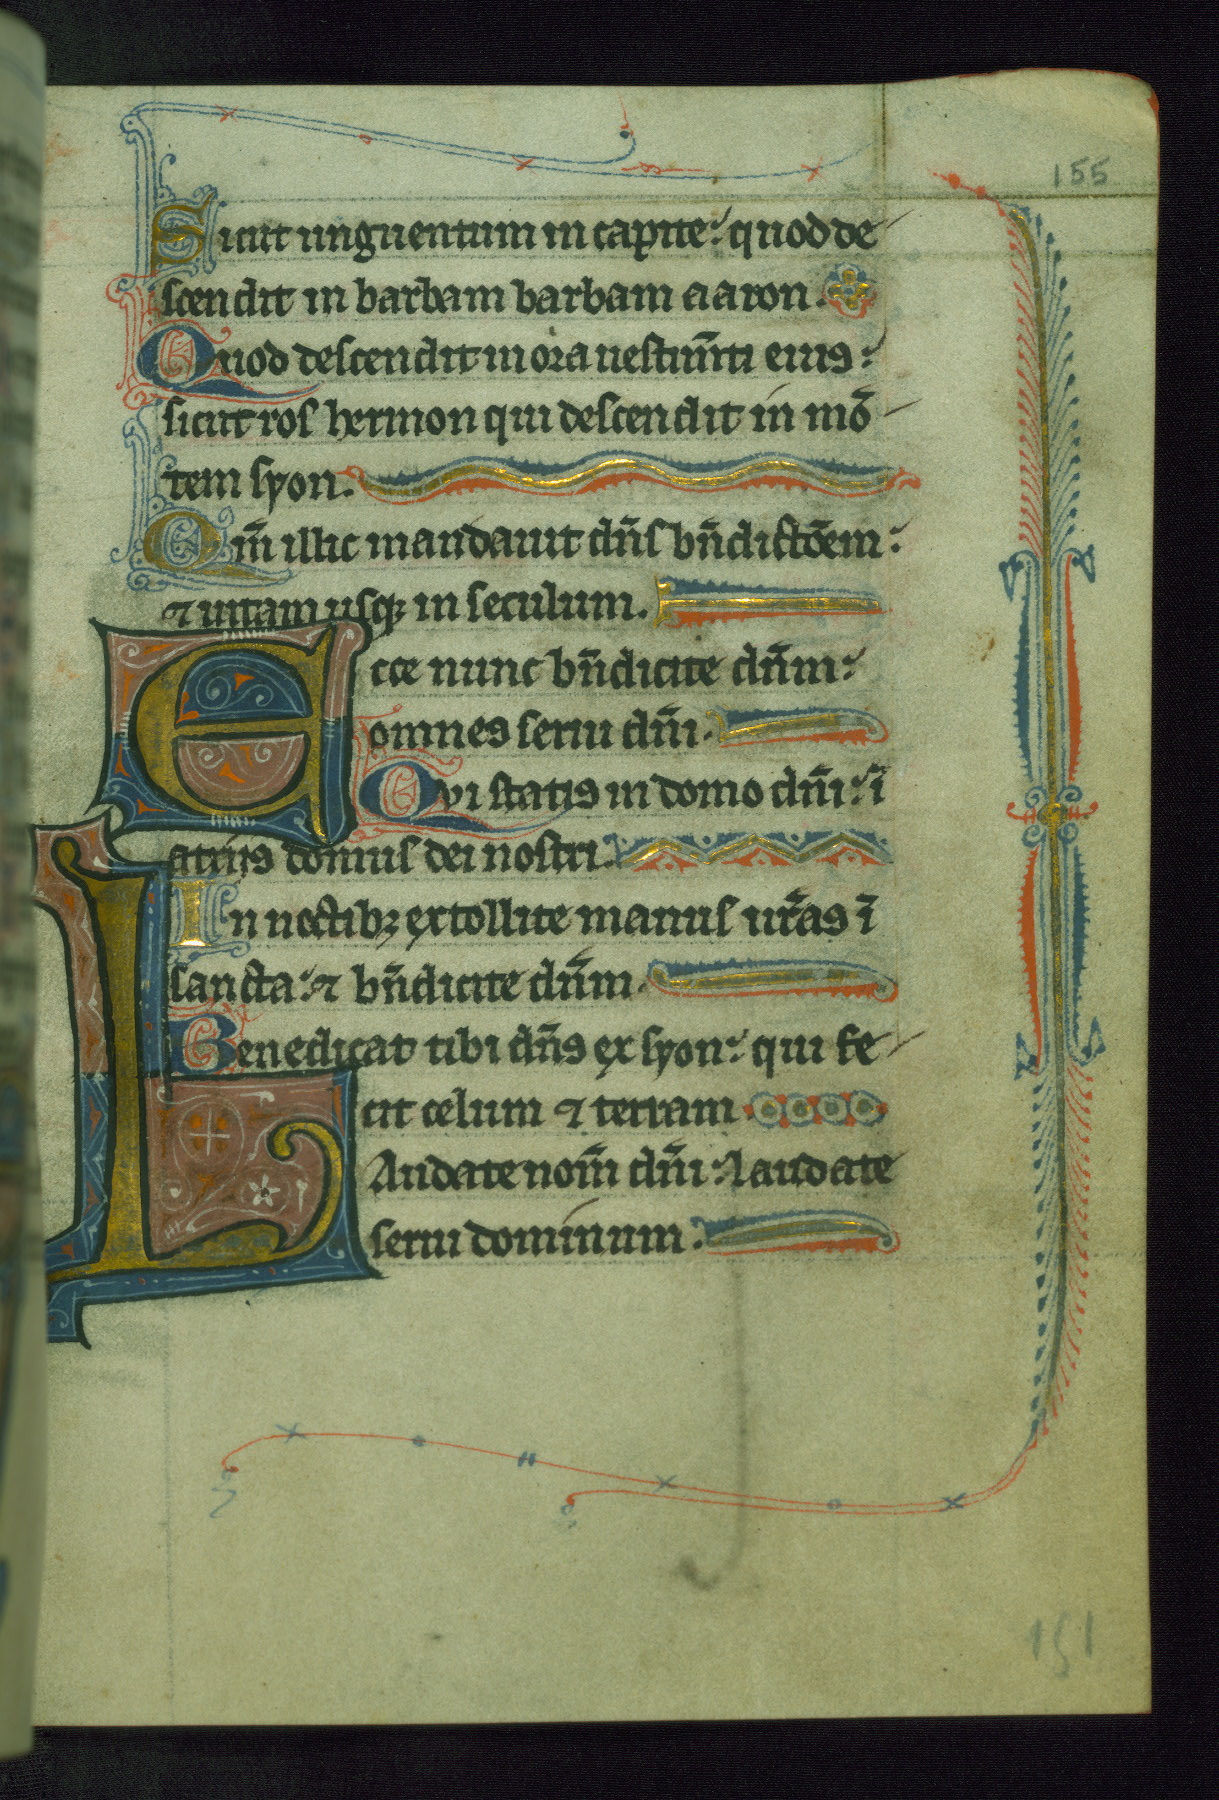 155
Sicut unguentum in capite: quod de
scendit in barbam barbam aaron.
Quod descendit in ora uestim̄ti eius:
sicut ros hermon qui descendit in mō
tem syon.
Qm̄ illic mandauit dn̄s bn̄dictōem:
⁊ uitam usq; in seculum.
Ecce nunc bn̄dicite dn̄m:
omnes serui dn̄i.
Qvi statis in domo dn̄i: ī
atriis domus dei nostri.
In noctibꝫ extollite manus ur̄as ī
sancta: ⁊ bn̄dicite dn̄m.
Benedicat tibi dn̄s ex syon: qui fe
cit celum ⁊ terram
LAudate nom̄ dn̄i: laudate
serui dominum.
151